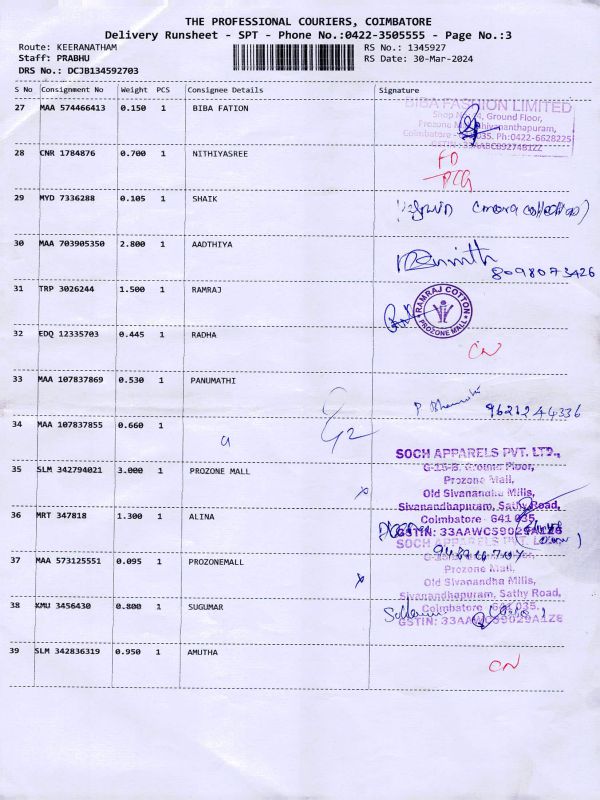 THE PROFESSIONAL COURIERS, COIMBATORE
Delivery Runsheet - SPT - Phone No.:0422-3505555 - Page No.:3
Route: KEERANATHAM RS No.: 1345927
Staff: PRABHU RS Date: 30-Mar-2024
DRS No.: DCJB134592703
S No Consignment No Weight PCS Consignee Details Signature
27 MAA 574466413 0.150 1 BIBA FATION
BIBA FASHION LIMITED
Ground Floor,
28 CNR 1784876 0.700 1 NITHIYASREE
FD
29 MYD 7336288 0.105 1 SHAIK
30 MAA 703905350 2.800 1 AADTHIYA
8098073426
31 TRP 3026244 1.500 1 RAMRAJ
RAMRAJ COTTON
PROZONE MALL
32 EDQ 12335703 0.445 1 RADHA
CN
33 MAA 107837869 0.530 1 PANUMATHI
9621244336
34 MAA 107837855 0.660 1
35 SLM 342794021 3.000 1 PROZONE MALL
SOCH APPARELS PVT. LTD.,
Prozone Mall,
Old Sivanandha Mills,
Sivanandhapuram, Sathy Road,
Coimbatore - 641 035.
GSTIN: 33AAWCS9029A1Z6
36 MRT 347818 1.300 1 ALINA
37 MAA 573125551 0.095 1 PROZONEMALL
SOCH APPARELS PVT. LTD.
Prozone Mall,
Old Sivanandha Mills,
Sivanandhapuram, Sathy Road,
Coimbatore - 641 035.
38 KMU 3456430 0.800 1 SUGUMAR
39 SLM 342836319 0.950 1 AMUTHA
CN